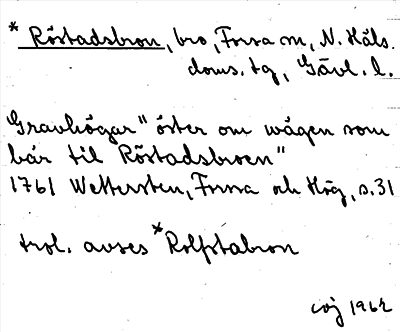 * Röstadsbron, bro, Forsa sn, N. Häls.
doms. tg, Gävl. l.
Gravhögar" öster om wägen som
bär til Röstadsbroen"
1761 Wettersten, Forssa och Hög, s. 31
trol. avses *Rolfstabron
1962